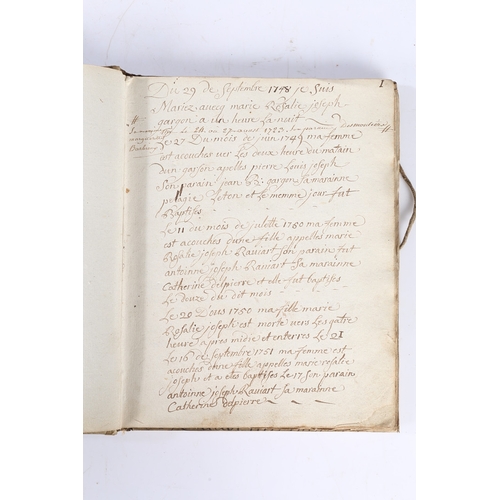 1
Du 29 de Septembre 1748 je Suis
Mariez avecq marie Rosalie joseph
gargon a un heure La nuit
Le 27 Du mois de juin 1749 ma femme
est acouchez ver Les deux heure du matain
dun garson apelles pierre Louis joseph
Son parain jean Bte gargon Sa marainne
pelagie Leton et Le memme jour fut
Baptises
Le 11 du mois de juilette 1750 ma femme
est acouches dune fille appelles marie
Rosalie joseph Raviart Son parain fut
antoinne joseph Raviart Sa marainne
Catherine delpierre et elle fut baptises
Le douze du dit mois
Le 20 Dous 1750 ma fille marie
Rosalie joseph est morte vers Les qatre
heure apres midie et enterres Le 21
Le 16 de Septembre 1751 ma femme est
acouches dune fille appelles marie rosalie
joseph et a etes baptises Le 17 Son parain
antoinne joseph Raviart Sa marainne
Catherine delpierre